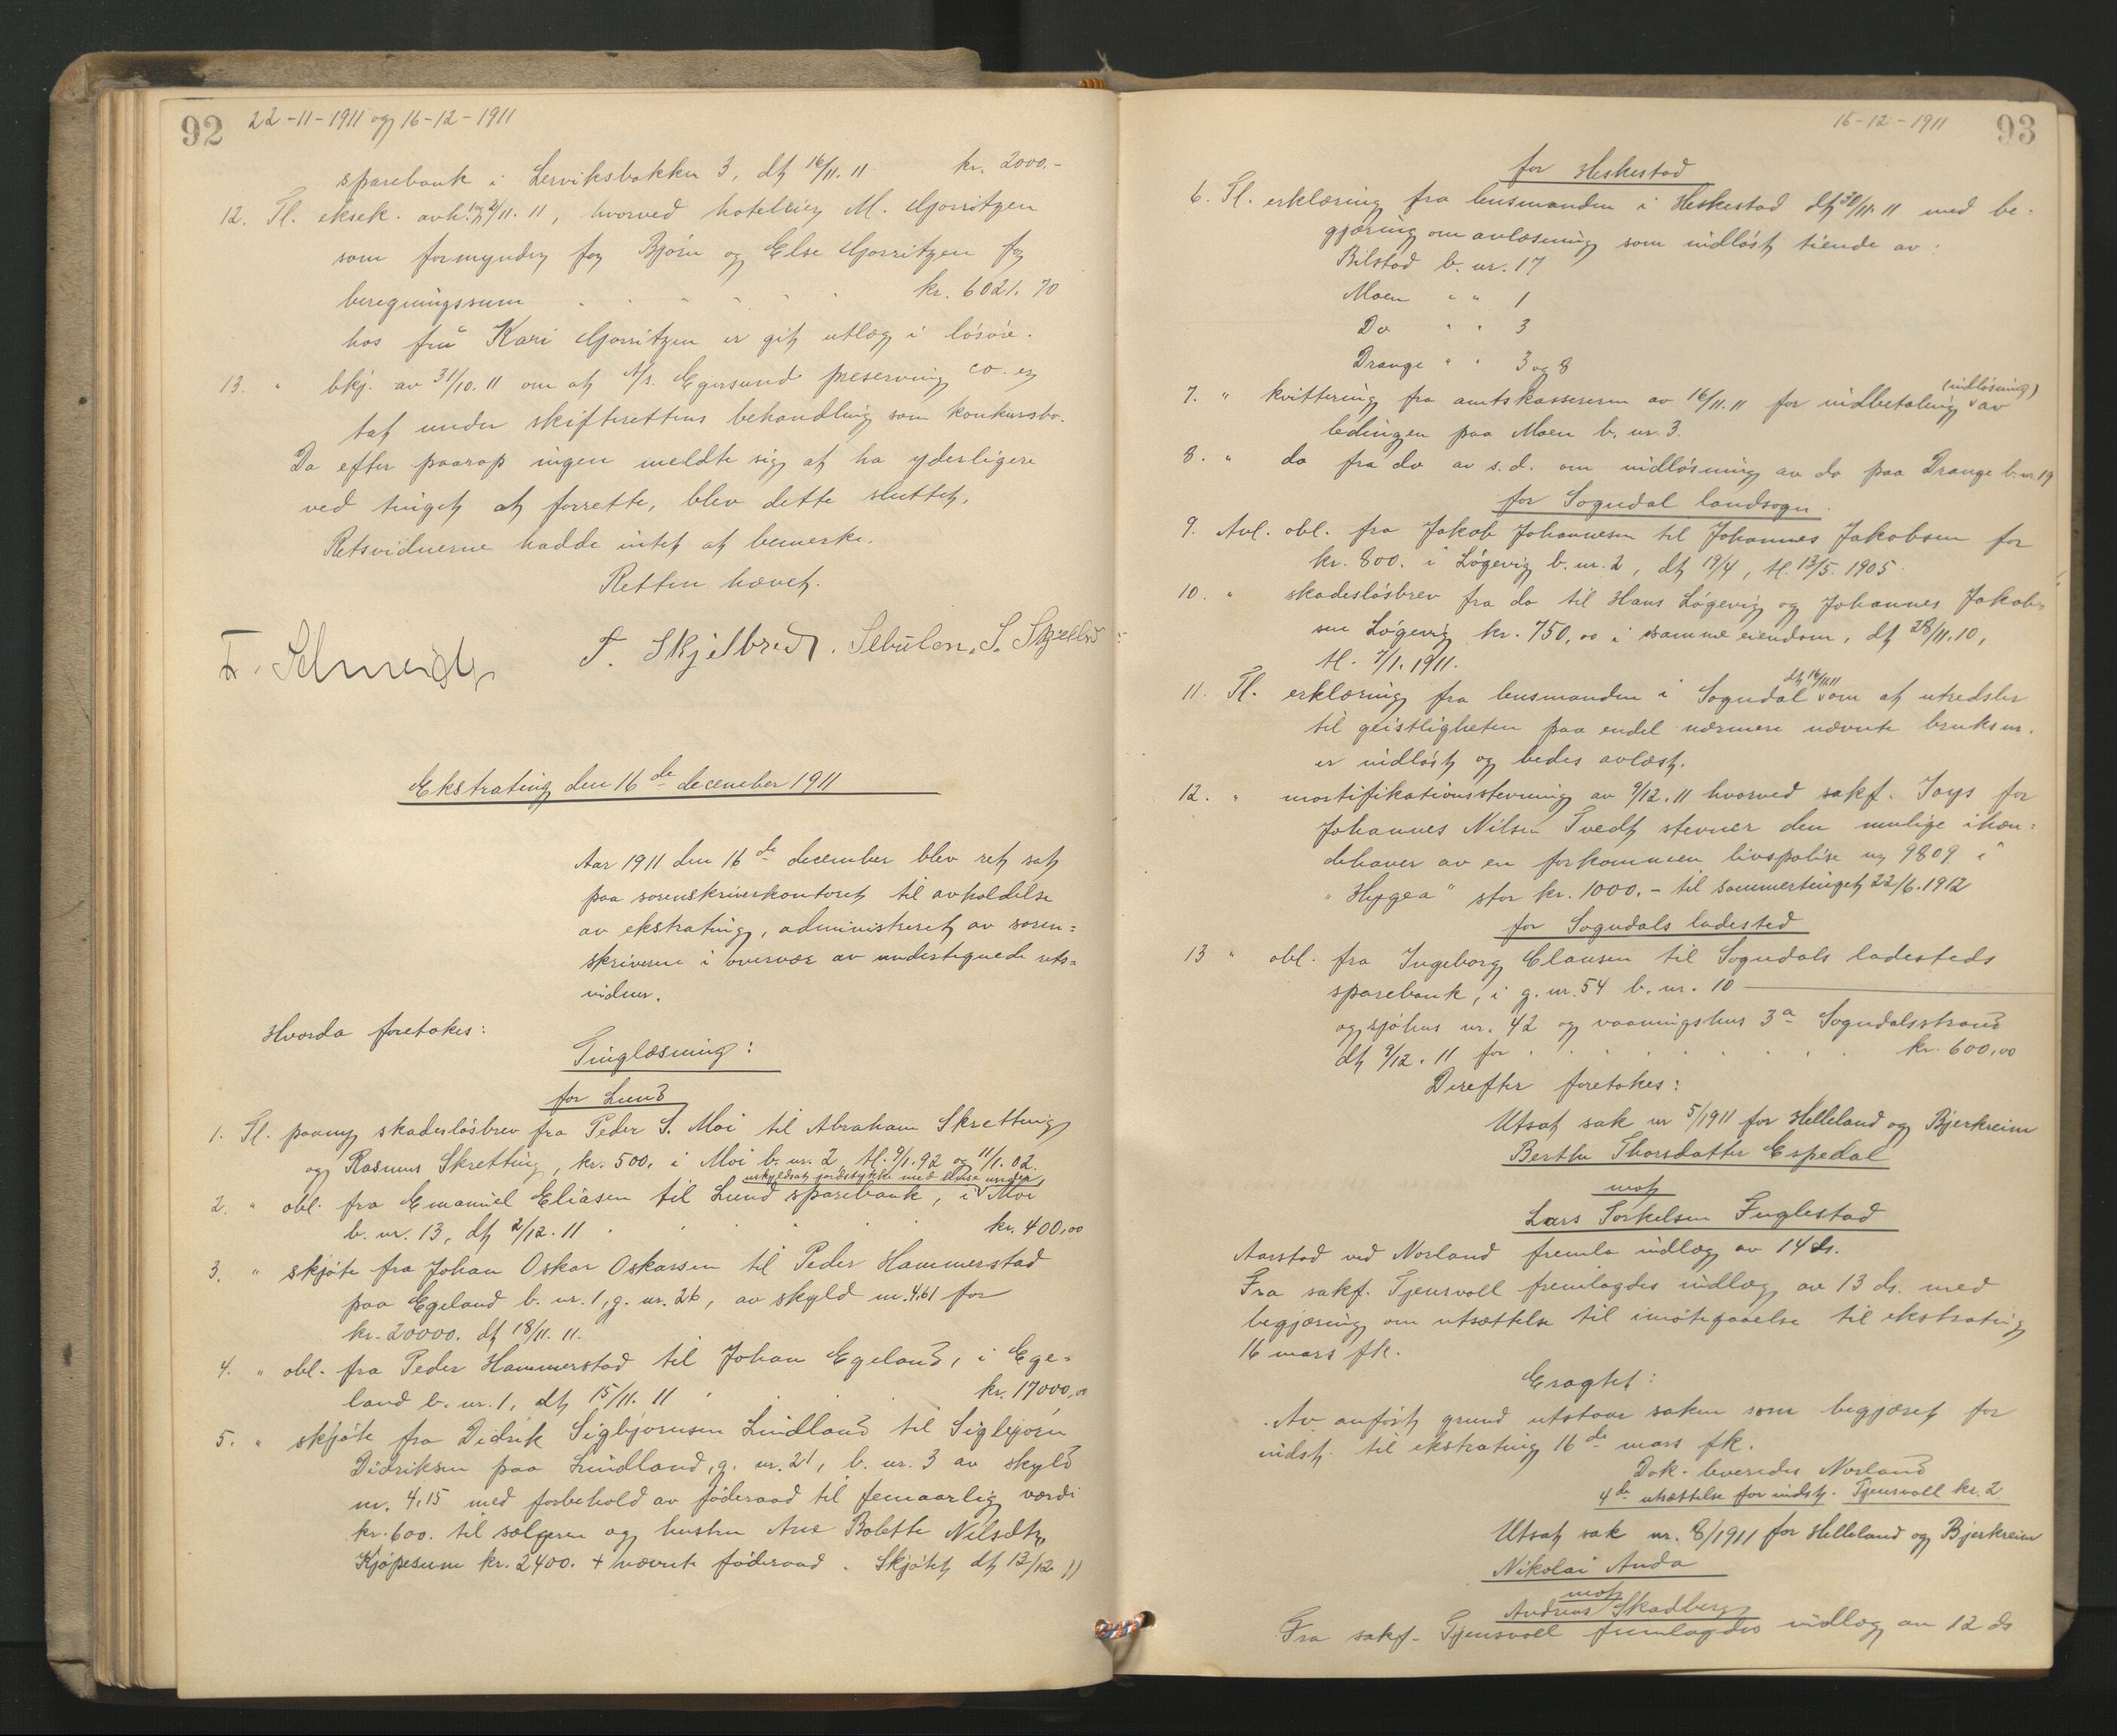 92
22-11-1911 og 16-12-1911
sparebank i Lerviksbakken 3, dt 16/11. 11 kr. 2000.-
12. Tl. eksek. avh. 1 og 2/11. 11, hvorved hoteleier M. Gjorritzen
som formynder for Bjørn og Else Gjorritzen for
beregningssum kr. 6021.70
hos frü Kari Gjorritzen er git utlæg i løsøre.
13. " bkj. av 31/10. 11 om at A/s. Egersund preserving co. er
tat under skifterettens behandling som konkursbo.
Da efter paarop ingen meldte sig at ha yderligere
ved tinget at forrette, blev dette sluttet.
Retsvidnerne hadde intet at bemerke.
Retten hævet.
F. Skjelbred. Sebulon. S.
Ekstrating den 16de december 1911
Aar 1911 den 16de december blev ret sat
paa sorenskriverkontoret til avholdelse
av ekstrating, administreret av soren=
skriveren i overvær av undertegnede rets=
vidner.
Hvorda foretokes:
Tinglæsning:
for Lund
1. Tl. paany skadesløsbrev fra Peder S. Moi til Abraham Skretting
og Rasmus Skretting, kr. 500. i Moi b. nr. 2, tl. 9/1. 92 og 11/1. 02.
uskyldsat jordstykke med huse under
2. " obl. fra Emanuel Eliasen til Lund sparebank, i Moi
b. nr. 13, dt 2/12. 11 kr. 400,00
3. " skjøte fra Johan Oskar Oskarsen til Peder Hammerstad
paa Egeland b. nr. 1, g. nr. 26, av skyld m. 4,61 for
kr. 20000. dt 18/11. 11.
4. " obl. fra Peder Hammerstad til Johan Egeland, i Ege=
land b. nr. 1, dt 15/11. 11 kr. 17000,00
5. " skjøte fra Didrik Sigbjørnsen Lindland til Sigbjørn
Didriksen paa Lindland, g. nr. 21, b. nr. 3 av skyld
m. 4,15 med forbehold av føderaad til femaarlig værdi
kr. 600. til sælgeren og hustru Ane Bolette Nilsdtr.
Kjøpesum kr. 2400. + nævnte føderaad. Skjøtet dt 13/12. 11
16-12-1911
93
for Heskestad
6. Tl. erklæring fra lensmanden i Heskestad dt 30/11. 11 med be=
gjæring om avlæsning som indløst tiende av:
Bilstad b. nr. 17
Moen " " 1
Do " " 3
Drange " " 3 og 8
(indløsning)
7. " kvittering fra amtskassereren av 16/11. 11 for indbetaling av
ledingen paa Moen b. nr. 3.
8. " do fra do av s. d. om indløsning av do paa Drange b. nr. 19
for Sogndal landsogn.
9. Avl. obl. fra Jakob Johannesen til Johannes Jakobsen for
kr. 800. i Løgevig b. nr. 2, dt 19/4, tl. 13/5. 1905
10. " skadesløsbrev fra do til Hans Løgevig og Johannes Jakob=
sen Løgevig kr. 750,00 i samme eiendom, dt 28/11. 10,
tl. 7/1. 1911.
dt 16/11.11
11. Tl. erklæring fra lensmanden i Sogndal om at utredsler
til geistligheten paa endel nærmere nævnte bruksnr.
er indløst og bedes avlæst.
12. " mortifikationsstevning av 9/12. 11 hvorved sakf. Joys for
Johannes Nilsen Tvedt stevner den mulige ihæn=
dehaver av en forkommen livspolise nr 9809 i
"Hygea" stor kr. 1000.- til sommertinget 22/6. 1912
for Sogndals ladested
13 " obl. fra Ingeborg Clausen til Sogndals ladesteds
sparebank, i g. nr. 54 b. nr. 10
og sjøhus nr. 42 og vaaningshus 3a Sogndalsstrand
dt 9/12. 11 for kr. 600,00
Derefter foretokes:
Utsat sak nr 5/1911 for Helleland og Bjerkreim
Berthe Thorsdatter Espedal
mot
Lars Torkelsen Fuglestad
Aarstad ved Norland fremla indlæg av 14 ds.
Fra sakf. Tjensvoll fremlagdes indlæg av 13 ds. med
begjæring om utsættelse til imøtegaaelse til ekstrating
16 mars fk.
Eragtet:
Av anført grund utstaar saken som begjæret for
indst. til ekstrating 16de mars fk.
Dok. leveredes Norland
4de utsættelse for indst. Tjensvoll kr. 2.
Utsat sak nr. 8/1911 for Helleland og Bjerkreim
Nikolai Anda
mot
Andreas Skadberg
Fra sakf. Tjensvoll fremlagdes indlæg av 12 ds